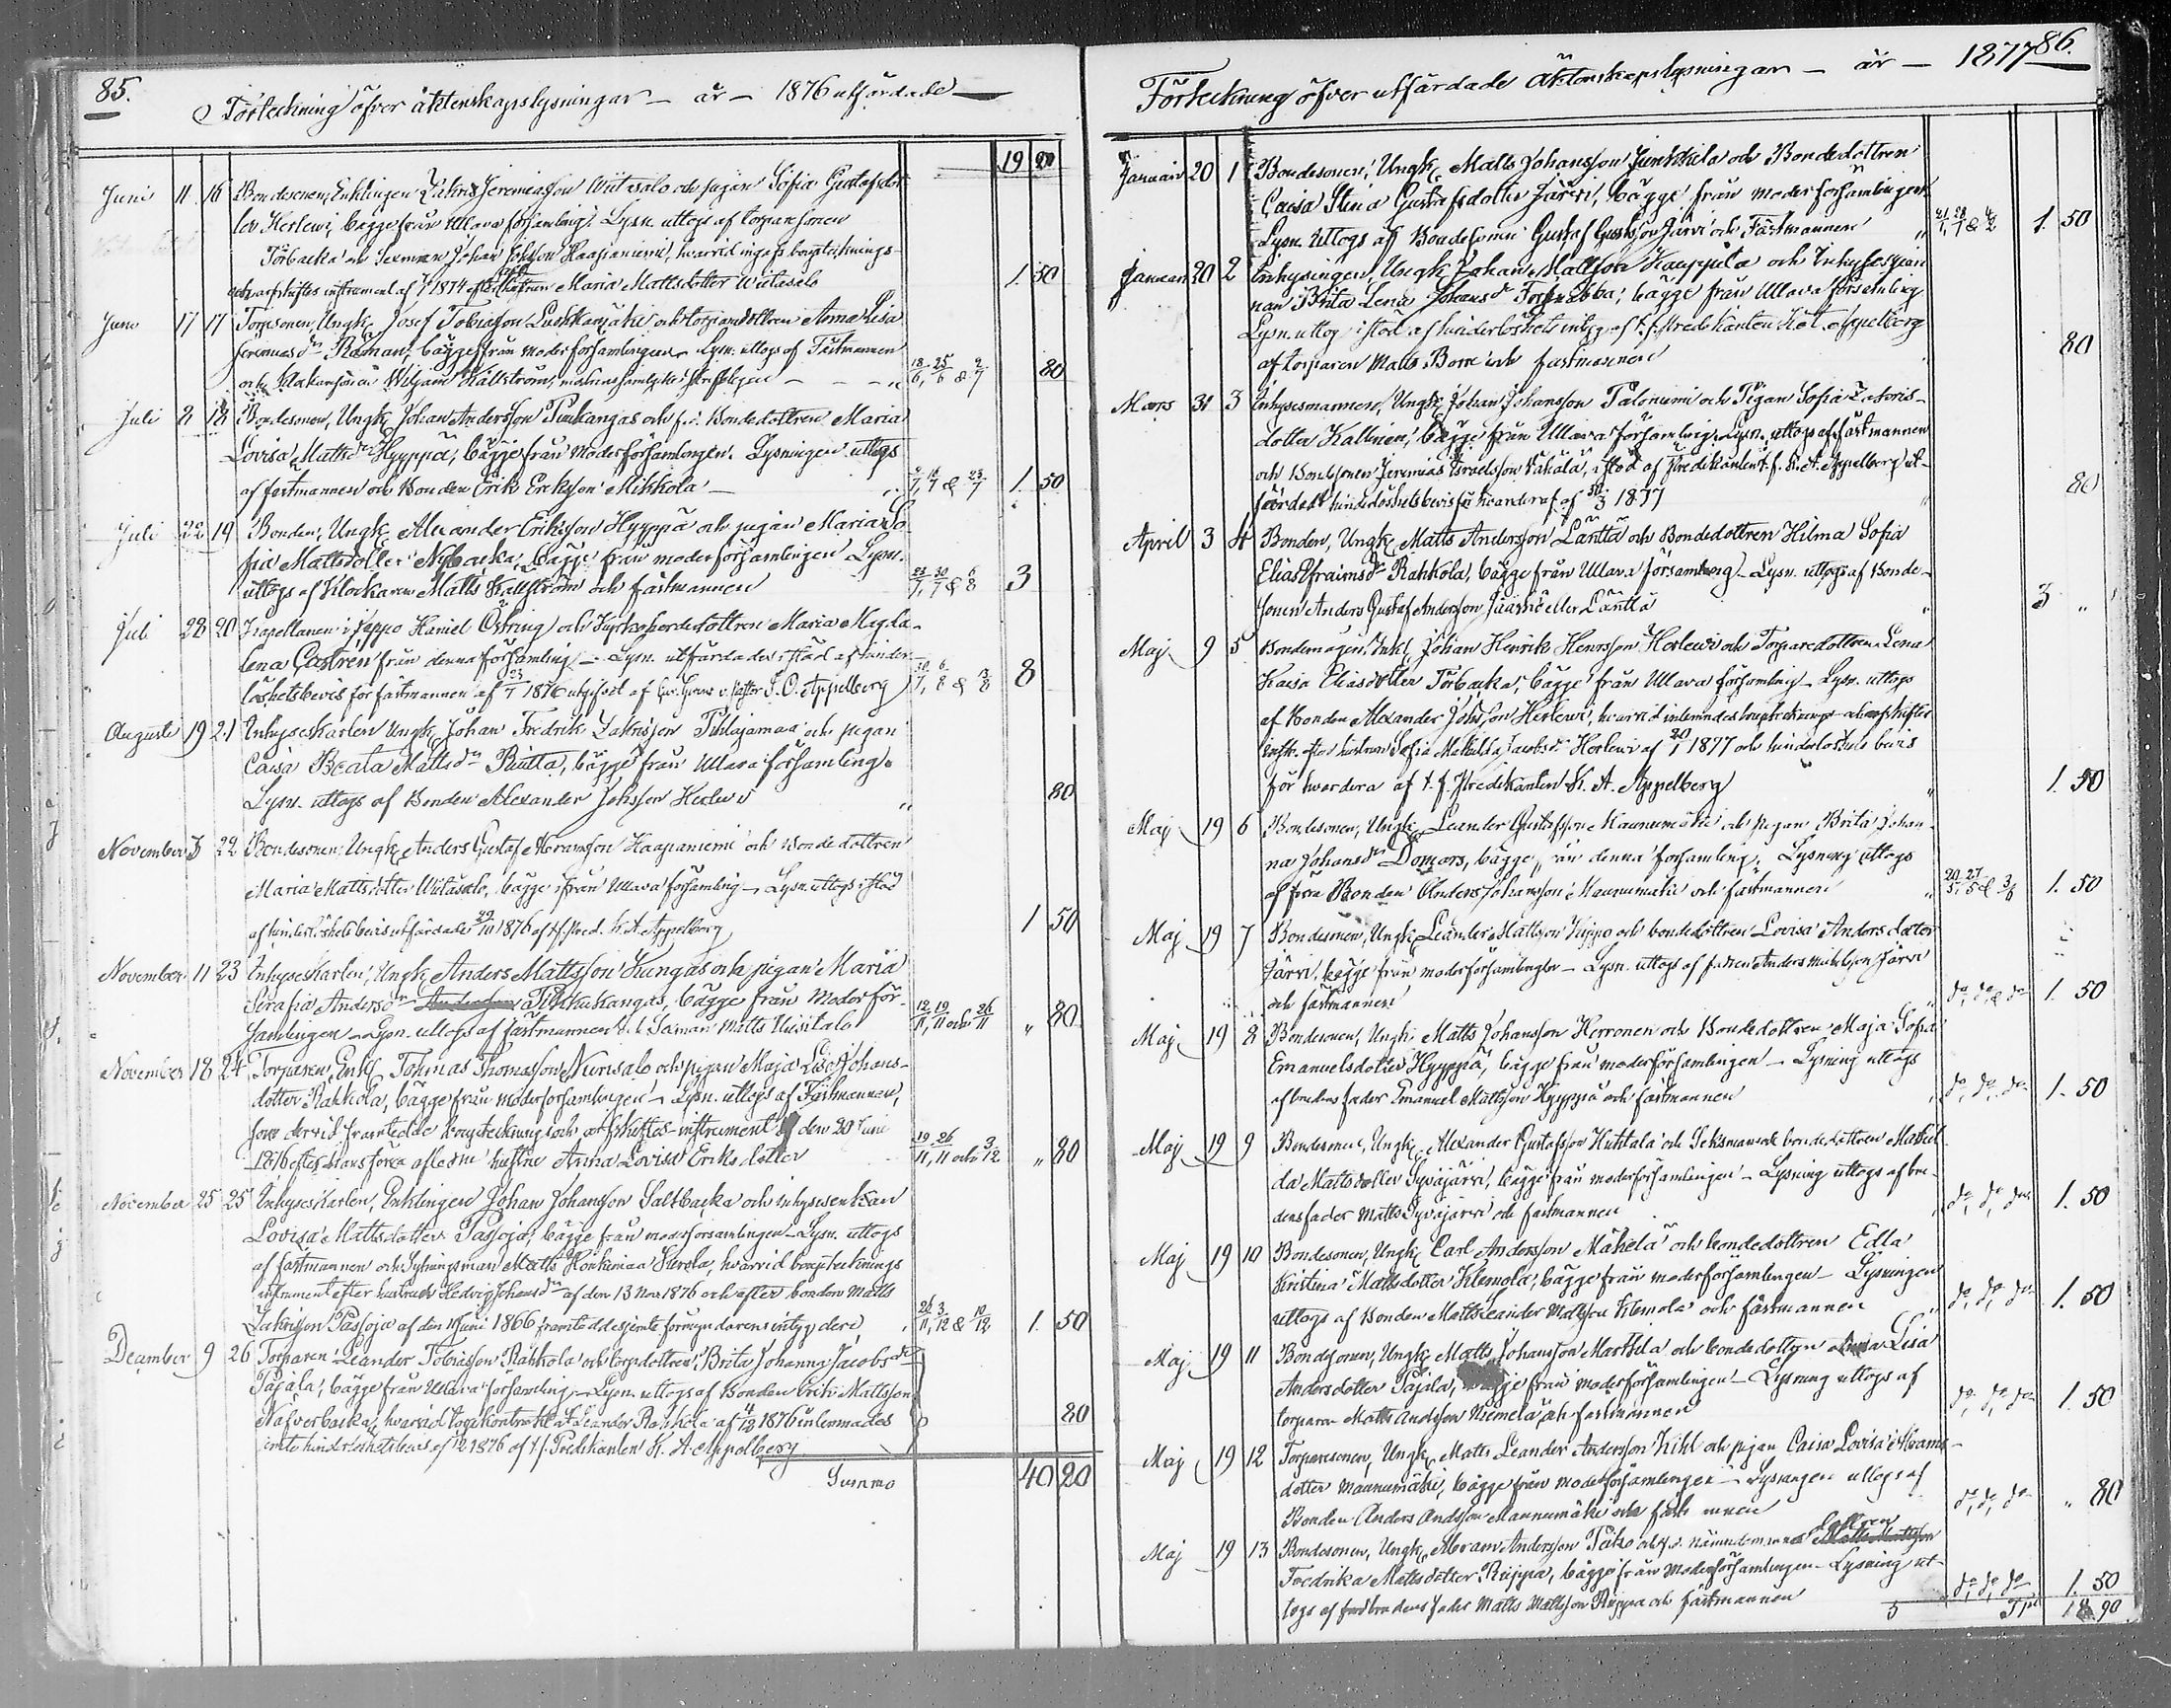 85.
Förteckning öfver äktenskapslysningar — år — 1876 utfärdade —
19 20
Juni 11 16 Bondesonen, Enklingen Zakris Jeremiasson Wiitasalo och pigan Sofia Gustafsdot-
ter Herlewi, bägge från Ullava församling. Lysn. uttogs af torparesonen
Törbacka och Sexman Johan Johsson Haapaniemi, hvarvid ingafs bouptecknings-
och arfskiftes instrument af 1874 efter hustrun Maria Mattsdotter Wiitasalo 1. 50
Juni 17 17 Torpsonen, Ungk. Josef Tobiasson Luokkamäki och torparedottren Anna Lisa
Jeremiasdr Råman, bägge från moderförsamlingen. Lysn. uttogs af Fästmannen
och Klockaresonen Wiljam Källström, 18/6, 25/6 & 2/7 80
Juli 8 18 Bondesonen, Ungk. Johan Andersson Pinkangas och f.d. Bondedottren Maria
Lovisa Mattsdr Hyyppä, bägge från Moderförsamlingen. Lysningen uttogs
af fästmannen och Bonden Erik Eriksson Mikkola — 9/7, 16/7 & 23/7 1. 50
Juli 22 19 Bonden, Ungk. Alexander Eriksson Hyyppä och pigan Maria So-
fia Mattsdotter Nybacka, bägge från moderförsamlingen Lysn.
uttogs af Klockaren Matts Källström och fästmannen 23/7, 30/7 & 6/8 3
Juli 28 20 Kapellanen i Jeppo Daniel Östring och Kyrkoherdedottren Maria Magda-
lena Castren från denna församling — Lysn. utfärdades i stöd af hinder-
löshetsbevis för fästmannen af 23/7 1876 utgifvet af J. O. Appelberg 30/7, 6/8 & 13/8 8
Augusti 19 21 Inhyseskarlen Ungk. Johan Fredrik Zakrisson Pihlajamaa och pigan
Caisa Beata Mattsdr Riutta, bägge från Ullava församling.
Lysn. uttogs af Bonden Alexander Johsson Herlewi 80
November 3 22 Bondesonen, Ungk. Anders Gustaf Abramsson Haapaniemi och Bondedottren
Maria Mattsdotter Wiitasalo, bägge från Ullava församling — Lysn. uttogs i stöd
af hinderlöshetsbevis utfärdade 29/10 1876 af t.f. Pred. K. A. Appelberg 1 50
November 11 23 Inhyseskarlen, Ungk. Anders Mattsson Kungas och pigan Maria
Serafia Andersdr Pihkakangas, bägge från Moderför-
samlingen — Lysn. uttogs af fästmannen och Sexman Matts Uusitalo 12/11, 19/11 och 26/11 „ 80
November 18 24 Torparen, Enkl. Tohmas Thomasson Nurisalo och pigan Maja Lisa Johans-
dotter Rahkola, bägge från moderförsamlingen — Lysn. uttogs af Fästmannen,
som dervid framtedde bouptecknings och arfskiftes-instrument af den 20 Juni
1876 efter hans förra aflidna hustru Anna Lovisa Eriksdotter 19/11, 26/11 och 3/12 „ 80
November 25 25 Inhyseskarlen, Enklingen Johan Johansson Saltbacka och inhysesenkan
Lovisa Mattsdotter Passoja, bägge från moderförsamlingen — Lysn. uttogs
af fästmannen och Syhningsman Matts Honkimaa Skrola, hvarvid bouptecknings
instrument efter hustrun Hedvig Johansdr af den 13 Nov 1876 och efter bonden Matts
Zakrisson Passoja af den Juni 1866 framtedde jemte förmyndarens intyg derå, 26/11, 3/12 & 10/12 1. 50
December 9 26 Torparen Leander Tobiasson Rahkola och torpdottren Brita Johanna Jacobsdr
Pajala, bägge från Ullava församling — Lysn. uttogs af Bonden Erik Mattsson
Näfverbacka, hvarvid för Leander Rahkola af 4/12 1876 inlemnades
jemte hinderlöshetsbevis af 1876 af t.f. Predikanten K. A. Appelberg 80
Summa 40 20
86.
Förteckning öfver utfärdade Äktenskapslysningar — år — 1877
Januari 20 1 Bondesonen, Ungk. Matts Johansson Junkkila och Bondedottren
Caisa Stina Gustafsdotter Järvi, bägge från moderförsamlingen
Lysn. uttogs af Bondesonen Gustaf Gustafsson Järvi och Fästmannen 21/1, 28/1 & 4/2 1. 50
Januari 20 2 Inhysingen, Ungk. Johan Mattsson Kauppila och Inhysespian
nan Brita Lena Johansdr Torpnabba, bägge från Ullava församling
Lysn. uttog i stöd af hinderlöshetsintyg af t.f. Predikanten K. A. Appelberg
af torparen Matts Borre och fästmannen 80
Mars 31 3 Inhysesmannen, Ungk. Johan Johansson Paloniemi och Pigan Sofia Zakaris-
dotter Kallinen, bägge från Ullava församling. Lysn. uttogs af fästmannen
och Bondesonen Jeremias Israelsson Käkälä, i stöd af Predikanten t.f. K. A. Appelberg ut-
färdadt hinderlöshetsbevis för hvardera af 30/3 1877 80
April 3 4 Bonden, Ungk. Matts Andersson Läntta och Bondedottren Hilma Sofia
Elias Efraimsdr Rahkola, bägge från Ullava församling — Lysn. uttogs af Bonde-
sonen Anders Gustaf Andersson Jääskö eller Läntta 3 „
Maj 9 5 Bondemågen, Enkl. Johan Henrik Henrsson Herlewi och Torparedottren Lena
Kaisa Eliasdotter Törbacka, bägge från Ullava församling — Lysn. uttogs
af Bonden Alexander Johsson Herlewi, hvarvid inlemnades bouptecknings- och arfskiftes
instr. efter hustrun Sofia Matilda Jacobsdr Herlewi af 20/1 1877 och hinderlöshets bevis
för hvardera af t.f. Predikanten K. A. Appelberg 1. 50
Maj 19 6 Bondesonen, Ungk. Leander Gustafsson Maunumäki och pigan Brita Johan-
na Johansdr Domars, bägge från denna församling. Lysning uttogs
af Bonden Anders Johansson Maunumäki och fästmannen 20/5, 27/5 & 3/6 1. 50
Maj 19 7 Bondesonen, Ungk. Leander Mattsson Kippo och bondedottren Lovisa Andersdotter
Järvi, bägge från moderförsamlingen — Lysn. uttogs af fadren Anders Mattsson Järvi
och fästmannen do, do & do 1. 50
Maj 19 8 Bondesonen, Ungk. Matts Johansson Herronen och Bondedottren Maja Sofia
Emanuelsdotter Hyyppä, bägge från moderförsamlingen — Lysning uttogs
af brudens fader Emanuel Mattsson Hyyppä och fästmannen do, do, do 1. 50
Maj 19 9 Bondesonen, Ungk. Alexander Gustafsson Huhtala och Seksmannens bondedottren Matil-
da Mattsdotter Syväjärvi, bägge från moderförsamlingen — Lysning uttogs af bru-
dens fader Matts Syväjärvi och fästmannen do, do, do 1. 50
Maj 19 10 Bondesonen, Ungk. Carl Andersson Mäkelä och bondedottren Edla
Kristina Mattsdotter Klemola, bägge från moderförsamlingen — Lysningen
uttogs af Bonden Matts Leander Mattsson Klemola och fästmannen do, do, do 1. 50
Maj 19 11 Bondesonen, Ungk. Matts Johansson Marttila och bondedottren Anna Lisa
Andersdotter Pajala, bägge från moderförsamlingen — Lysning uttogs af
torparen Matts Andsson Niemelä och fästmannen do, do, do 1. 50
Maj 19 12 Torparesonen, Ungk. Matts Leander Andersson Kihl och pigan Caisa Lovisa Abrams-
dotter Maunumäki, bägge från moderförsamlingen — Lysningen uttogs af
Bonden Anders Andsson Maunumäki och fästmannen do, do, do „ 80
Maj 19 13 Bondesonen, Ungk. Abram Andersson Päkö och f.d. nämndemans dottren
Fredrika Mattsdotter Riippa, bägge från Moderförsamlingen — Lysning ut-
togs af brudens fader Matts Mattsson Riippa och fästmannen do, do, do 1. 50
18 90